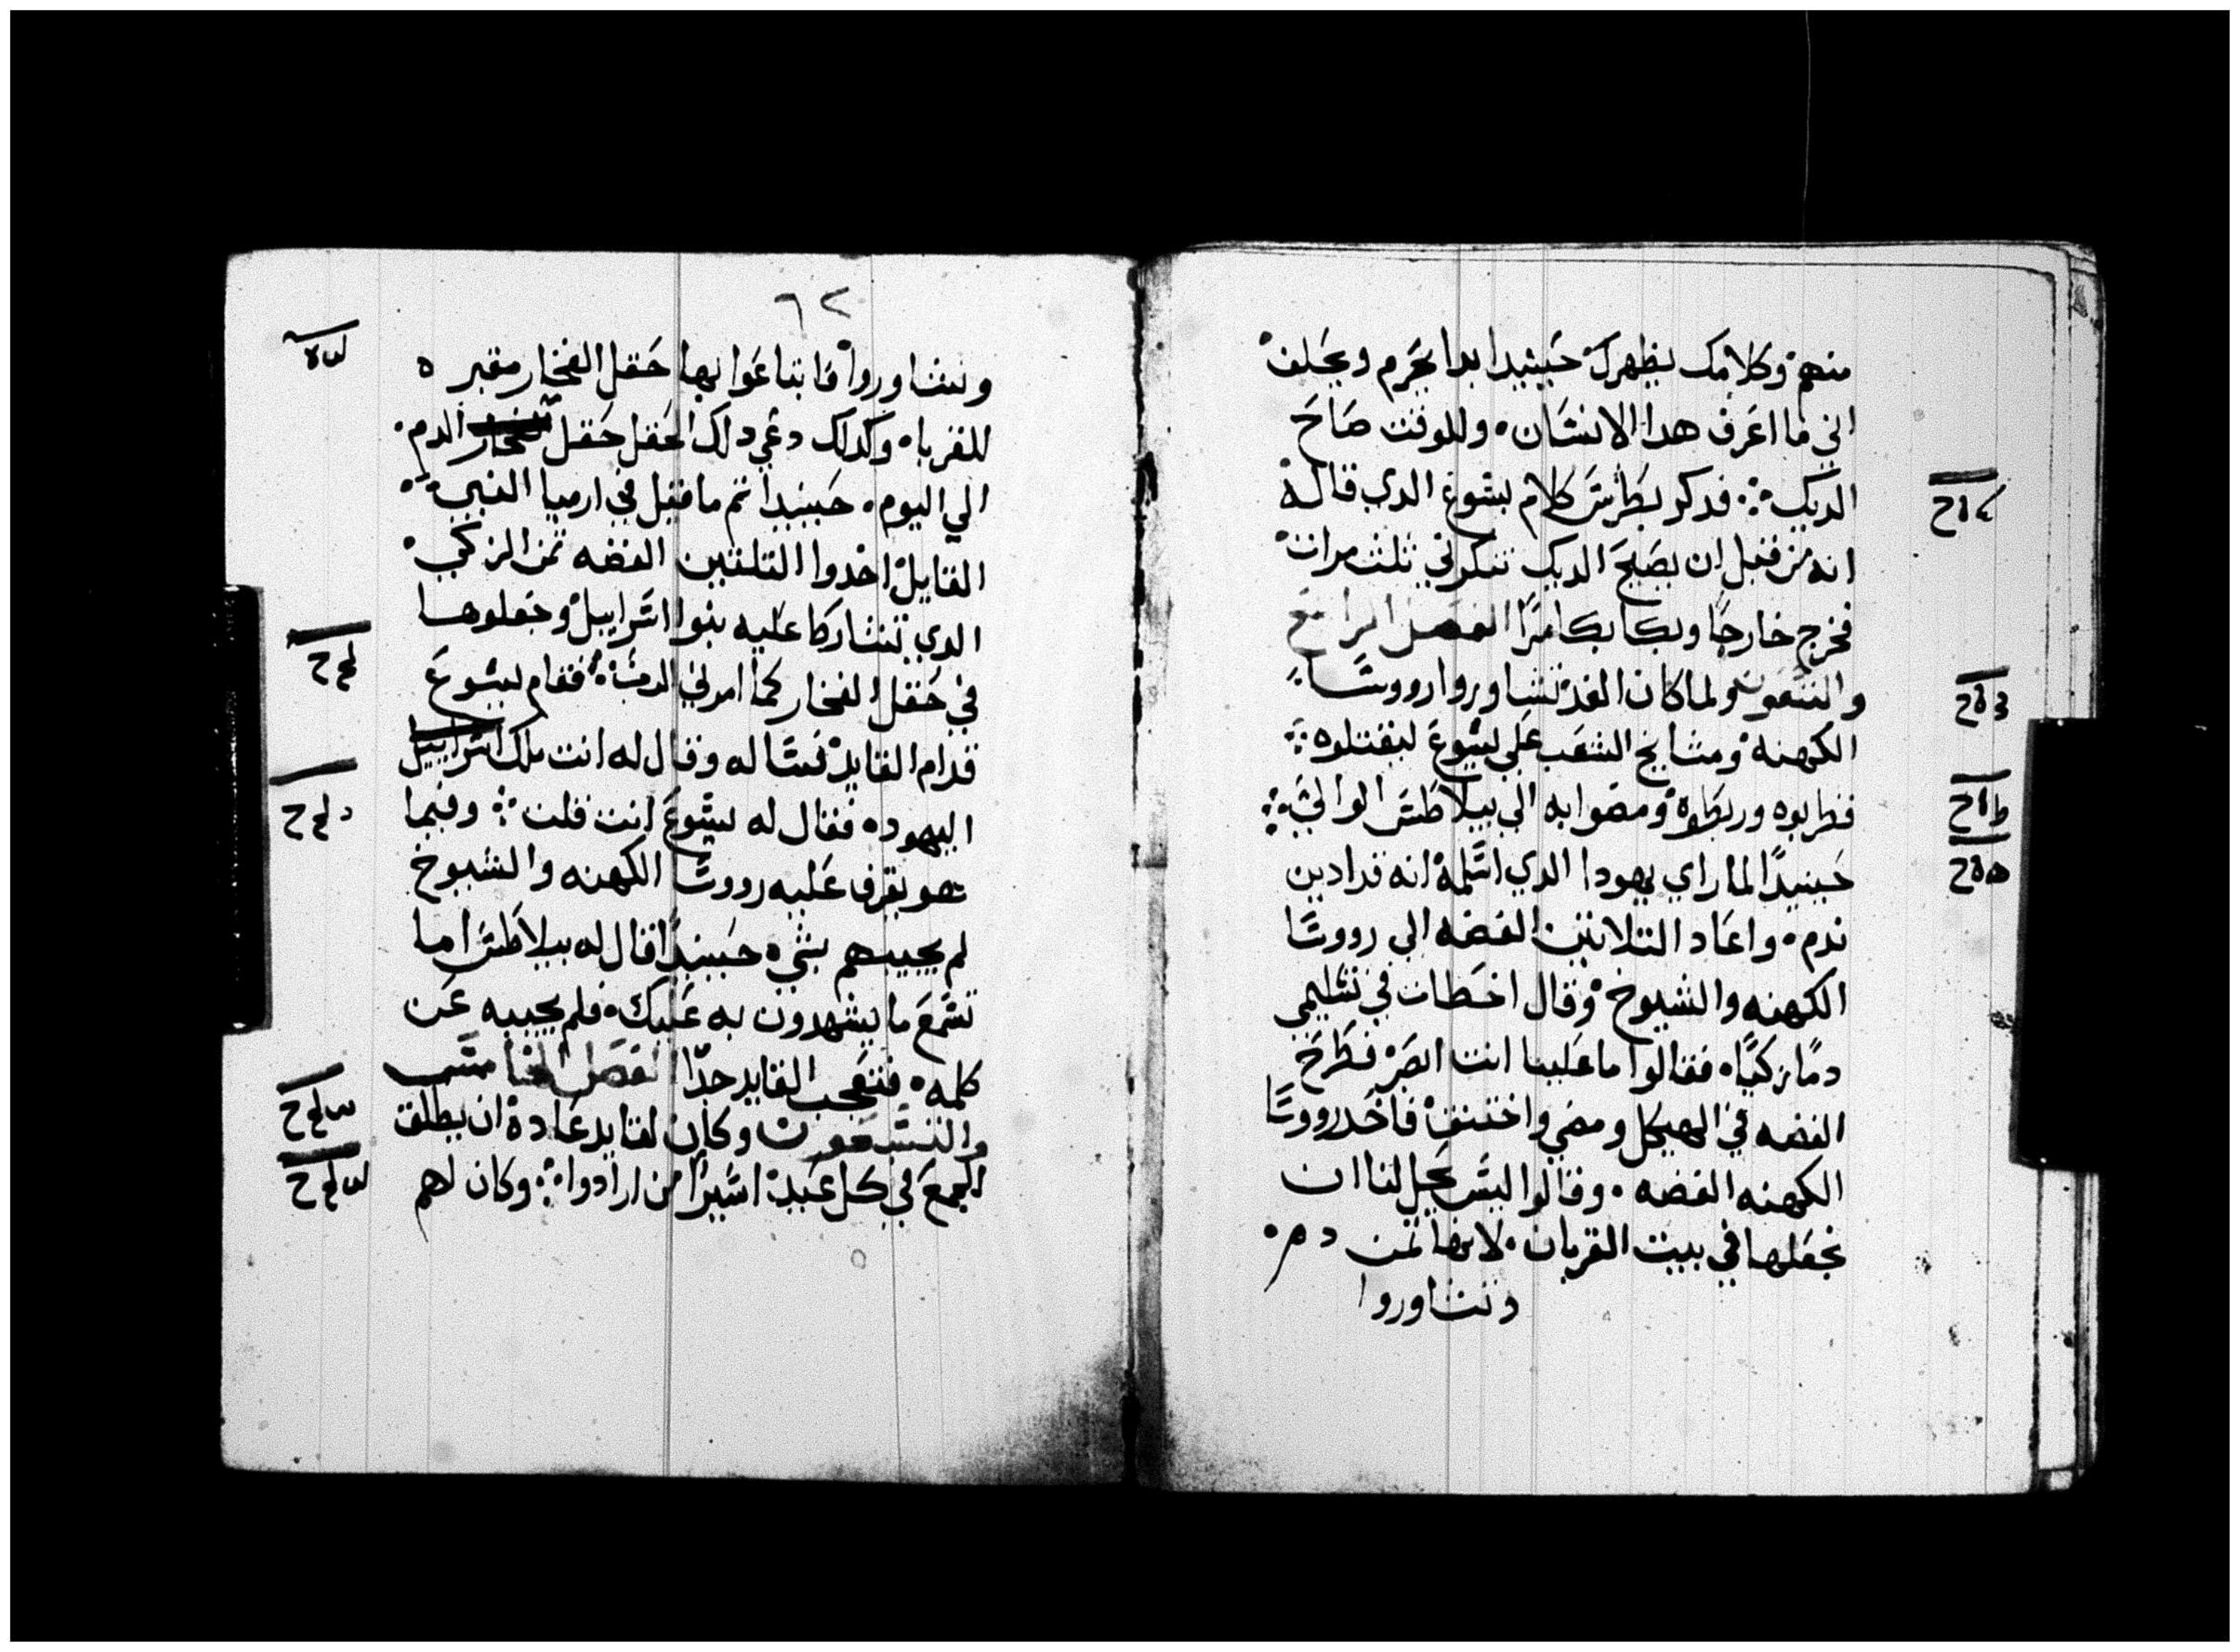 منهم وكلامك يظهرك حينيدا بدا يحرم ويحلف
اني ما اعرف هدا الانسان وللوقت صاح
الديك فدكر بطرس كلام يسوع الدي قال له
انه من قبل ان يصيح الديك تنكرني ثلث مرات
فخرج خارجا وبكا بكا مرا الفصل الرابع
والتسعون ولما كان الغد تشاوروا رووسا
الكهنه ومشايخ الشعب علي يسوع ليقتلوه
فربطوه ومضوا به الي بيلاطس الوالي
حينيدا لما راي يهودا الدي اسلمه انه قد ادين
ندم واعاد التلاتين الفضه الي رووسا
الكهنه والشيوخ وقال اخطات في تسليمي
دما زكيا فقالوا ما علينا انت ابصر فطرح
الفضه في الهيكل ومضي واختنق فاخد رووسا
الكهنه الفضه وقالوا ليس يحل لنا ان
نجعلها في بيت القربان لانها تمن دم
وتشاوروا
٦٢
وتشاوروا فابتاعوا بها حقل الفخار مقبره
للغربا وكدلك دعي دلك الحقل حقل الدم
الي اليوم حينيدا تم ما قيل في ارميا النبي
القايل اخدوا التلتين الفضه تمن الزكي
الدي تشاركا عليه بنوا اسراييل وجعلوها
في حقل الفخار كما امرني الرب فقام يسوع
قدام القايد فساله وقال له انت ملك اسراييل
اليهود فقال له يسوع انت قلت وفيما
هو يقرف عليه رووسا الكهنه والشيوخ
لم يجيبهم بشي حينيدا قال له بيلاطس اما
تسمع ما يشهدون به عليك فلم يجيبه عن
كلمه فتعجب القايد جدا الفصل الخامس
والتسعون وكان لقايد عادة ان يطلق
للجمع في كل عيد اسيرا من ارادوا وكان لهم